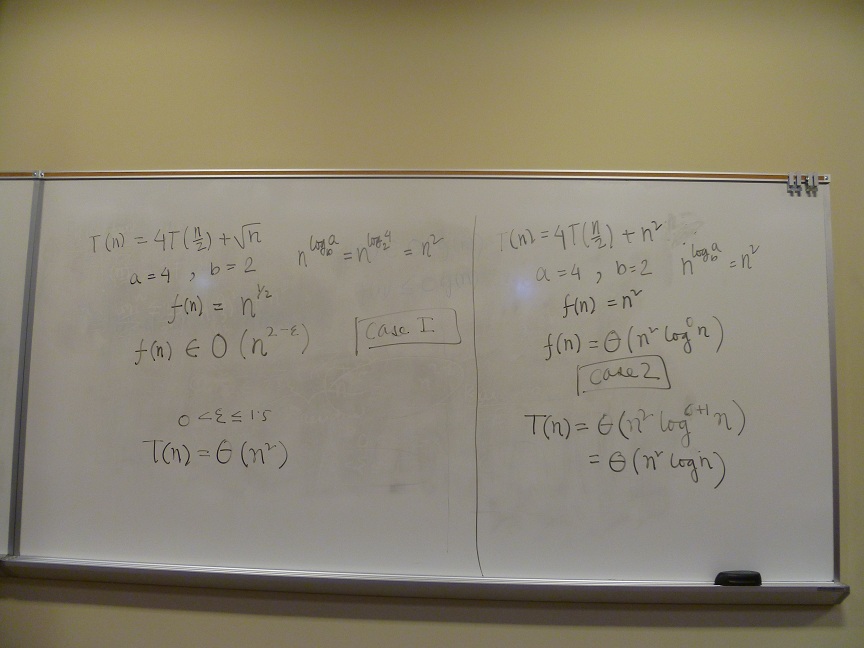 T(n) = 4T(n/2) + √n
a = 4 , b = 2
n^{log_b a} = n^{log_2 4} = n²
f(n) = n^{1/2}
f(n) ∈ O(n^{2-ε})
Case I
0 < ε ≤ 1.5
T(n) = Θ(n²)
T(n) = 4T(n/2) + n²
a = 4 , b = 2
n^{log_b a} = n²
f(n) = n²
f(n) = Θ(n² log⁰ n)
Case 2
T(n) = Θ(n² log^{0+1} n)
= Θ(n² log n)